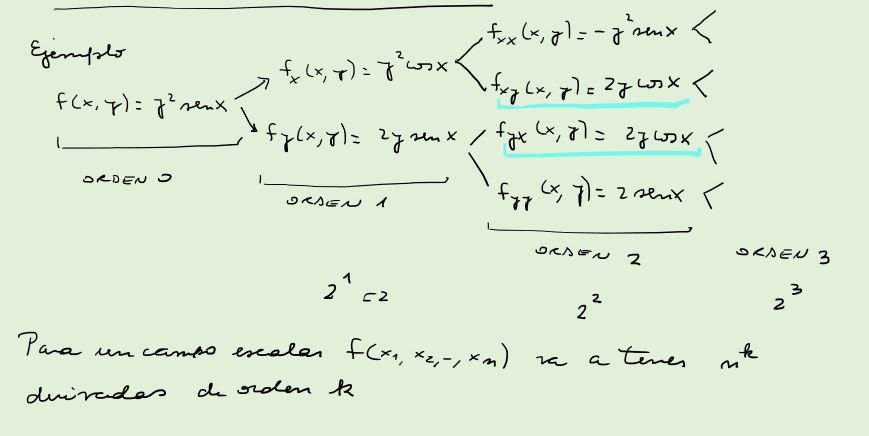 Ejemplo
f(x, y) = y² senx
ORDEN 0
fₓ(x, y) = y² cosx
f_y(x, y) = 2y senx
ORDEN 1
fₓₓ(x, y) = -y² senx <
f_xy(x, y) = 2y cosx <
f_yx(x, y) = 2y cosx <
f_yy(x, y) = 2 senx <
ORDEN 2
ORDEN 3
2¹ = 2
2²
2³
Para un campo escalar f(x₁, x₂, -, xₙ) va a tener nᵏ
derivadas de orden k